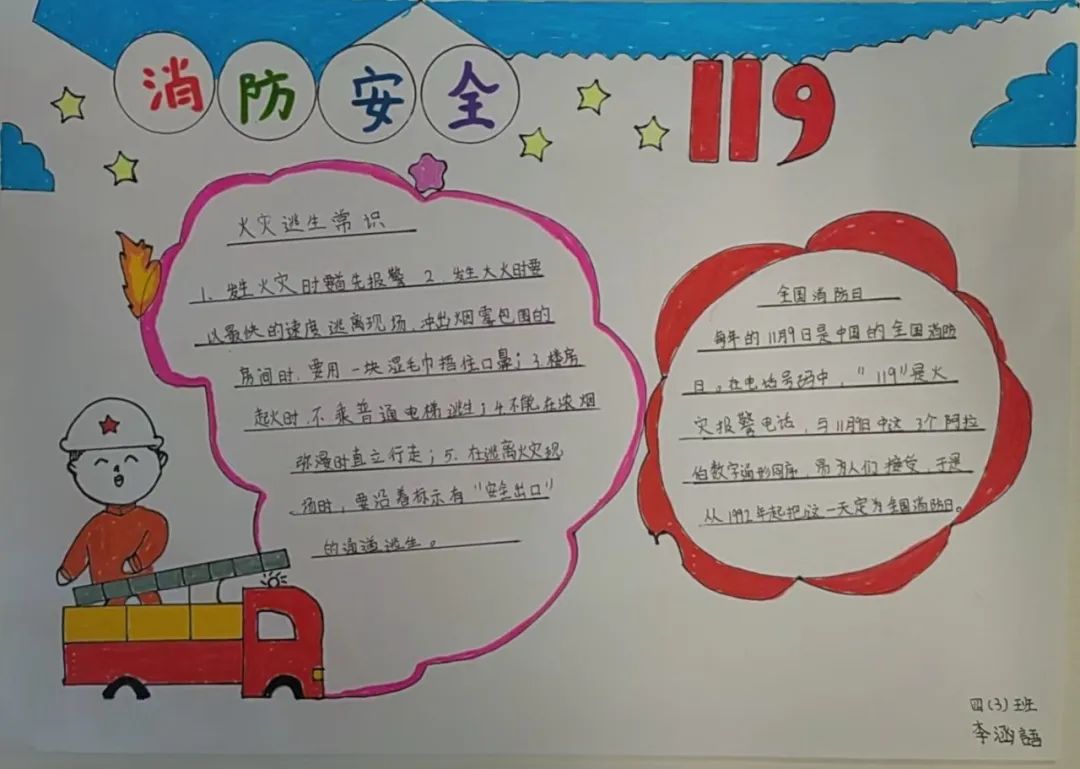 消防安全
119
火灾逃生常识
1. 发生火灾时要首先报警 2. 发生大火时要
以最快的速度逃离现场,冲出烟雾包围的
房间时,要用一块湿毛巾捂住口鼻;3.楼房
起火时,不乘普通电梯逃生;4.不能在浓烟
弥漫时直立行走;5. 在逃离火灾现
场时,要沿着标示有“安全出口”
的通道逃生。
全国消防日
每年的11月9日是中国的全国消防
日。在电话号码中,“119”是火
灾报警电话,与11月9日中这3个阿拉
伯数字 同序,易为人们接受,于是
从1992年起把这一天定为全国消防日。
四(3)班
李涵語